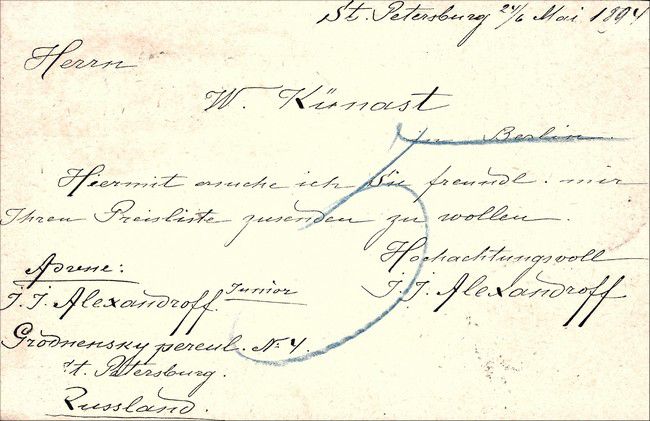 St. Petersburg 24/6 Mai 1894
Herrn
W. Künast
in Berlin.
Hiermit ersuche ich Sie freundl. mir
Ihren Preisliste zusenden zu wollen.
Hochachtungsvoll
J. J. Alexandroff
Adresse:
J. J. Alexandroff. Junior
Grodnensky pereul. No 4.
St. Petersburg.
Russland.